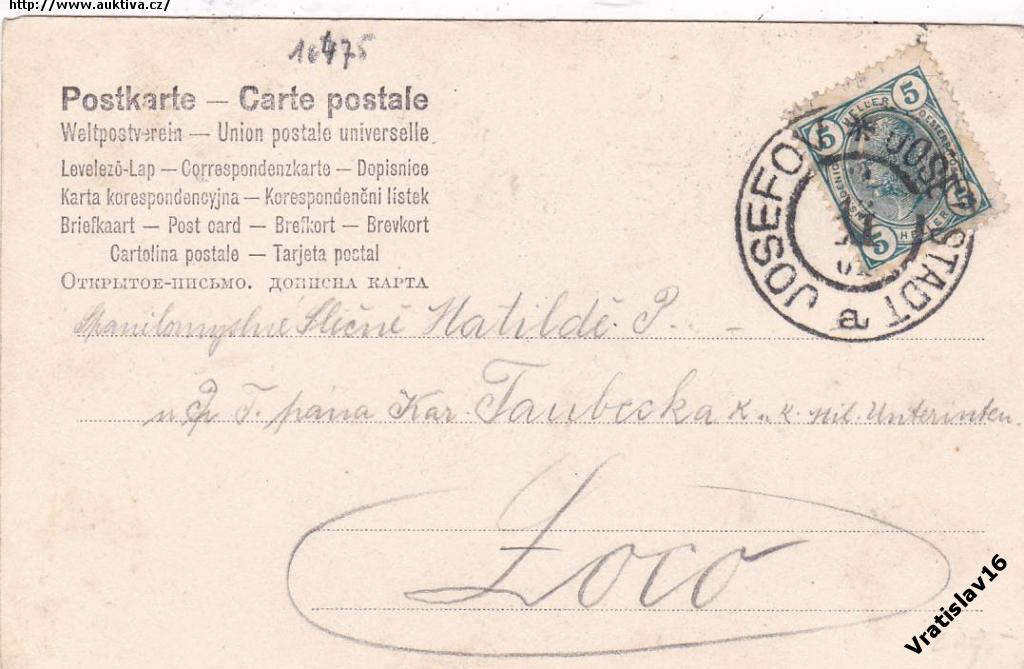 http://www.auktiva.cz/
16475
Postkarte — Carte postale
Weltpostverein — Union postale universelle
Levelező-Lap — Correspondenzkarte — Dopisnice
Karta korespondencyjna — Korespondenční lístek
Briefkaart — Post card — Brefkort — Brevkort
Cartolina postale — Tarjeta postal
Открытое-письмо. дописна карта
5 HELLER 5
5 HELLER
JOSEFOV * JOSEFSTADT a
Slečně Matildě P.
Kar. Taubecka K. u. k. Mil. Unterinten.
Loco
Vratislav16